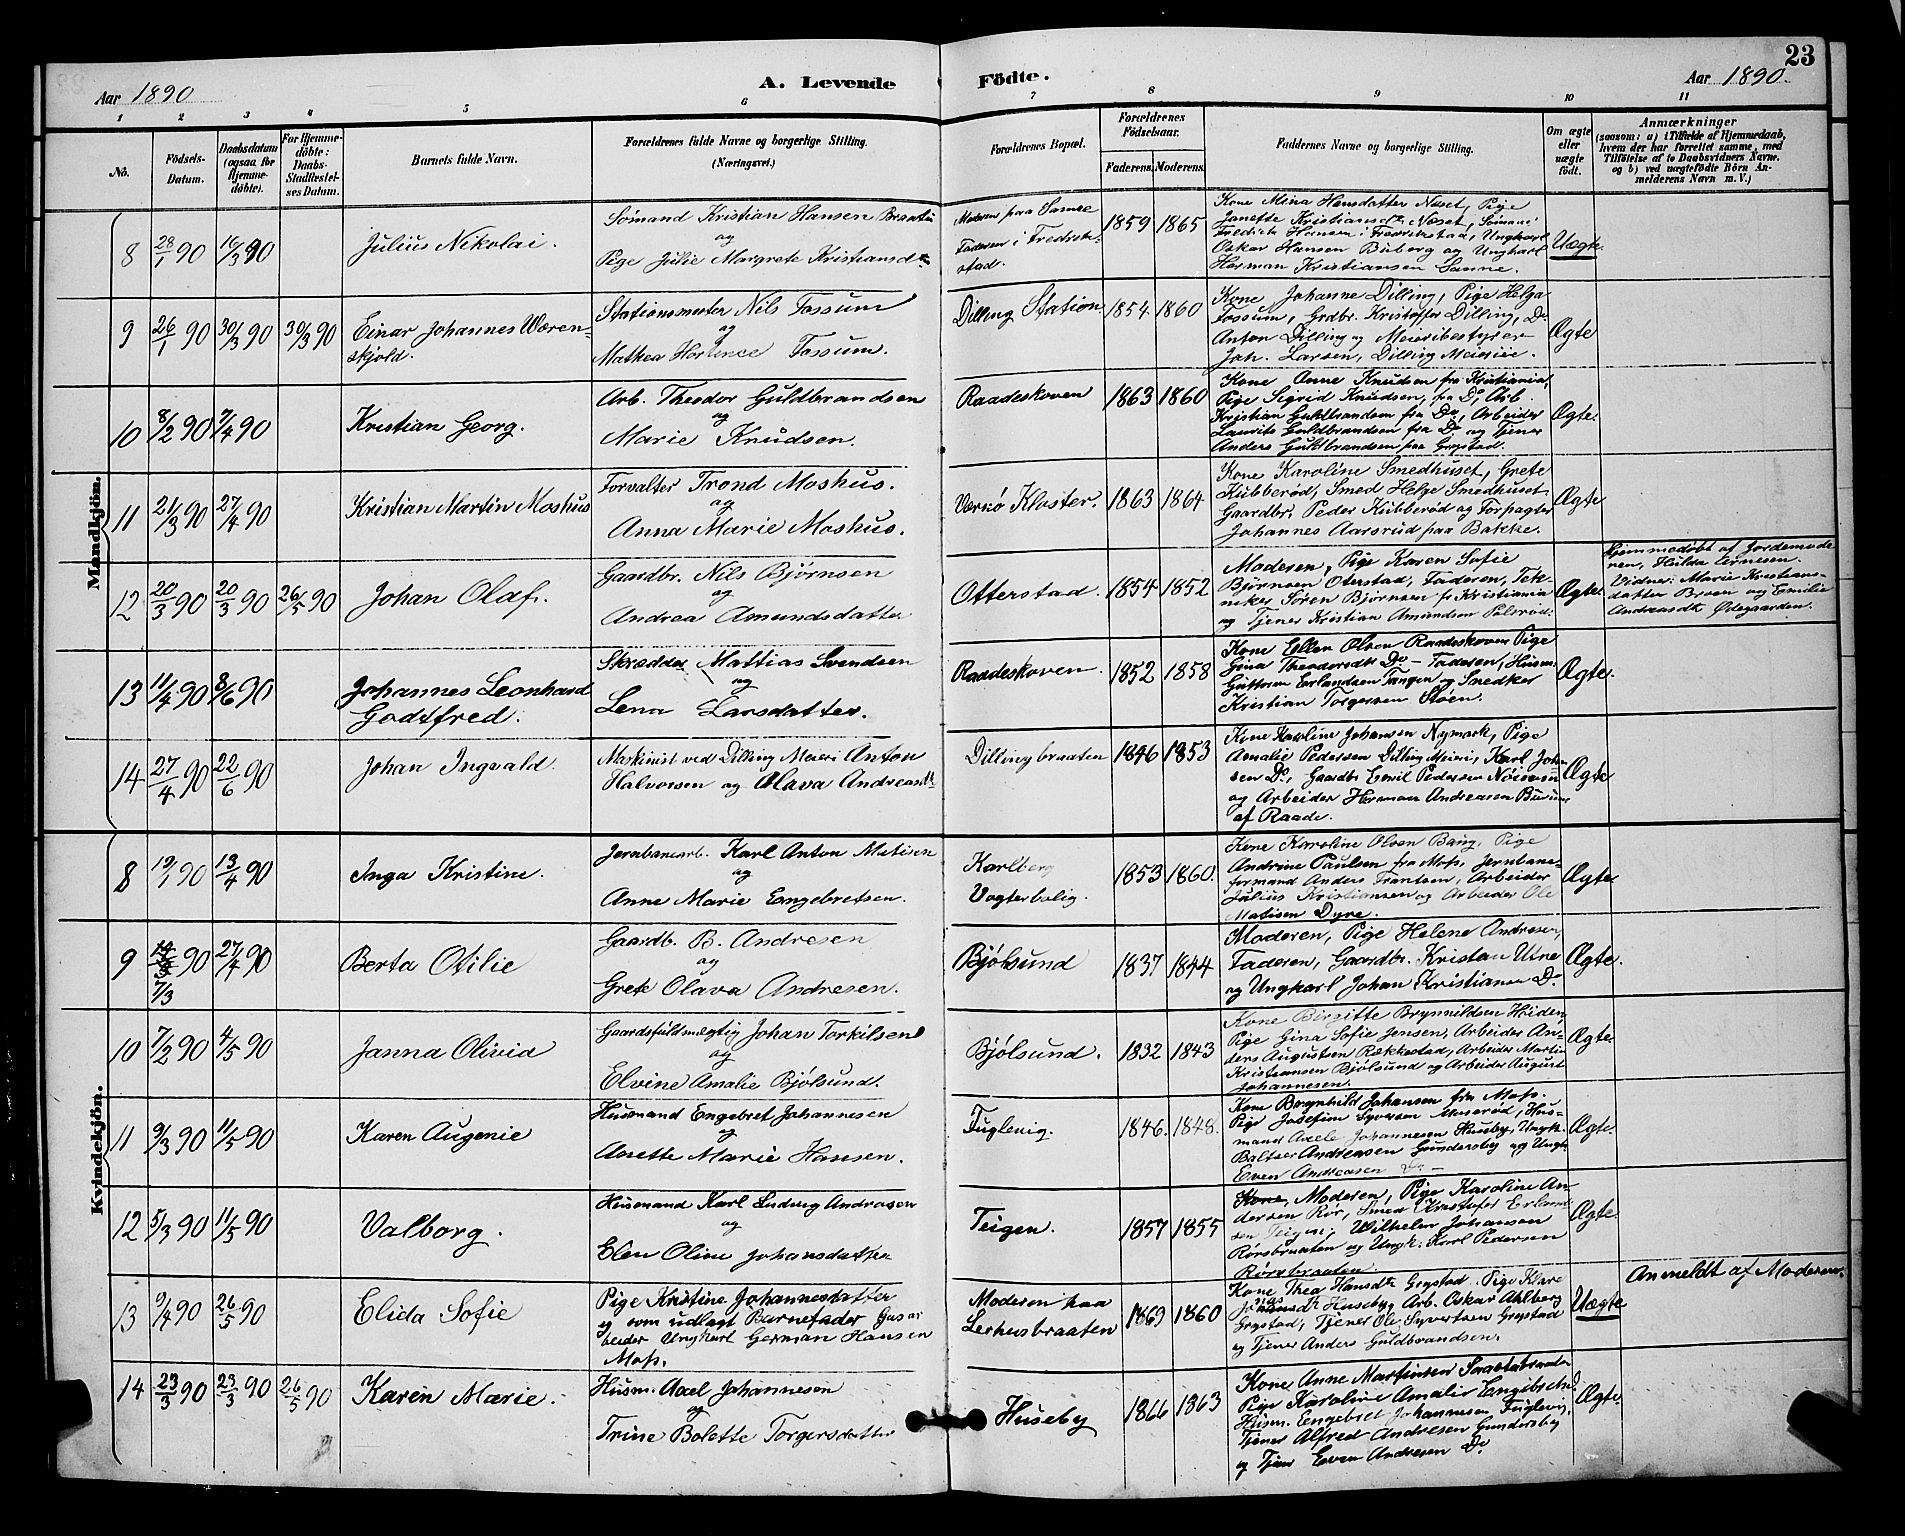 23
Aar 1890
A. Levende Födte.
Aar 1890.
1 2 3 4 5 6 7 8 9 10 11
No.
Födsels-Datum.
Daabsdatum (ogsaa for Hjemme-döbte).
For Hjemme-döbte: Daabs-Stadfæstel-ses Datum.
Barnets fulde Navn.
Forældrenes fulde Navne og borgerlige Stilling. (Næringsvei.)
Forældrenes Bopæl.
Forældrenes Födselsaar.
Faderens. Moderens.
Faddernes Navne og borgerlige Stilling.
Om ægte eller uægte födt.
Anmærkninger
(saasom: a) i Tilfælde af Hjemmedaab,
hvem der har forrettet samme, med
Tilföielse af to Daabsvidners Navne.
og b) ved uægtefödte Börn An-
melderens Navn m. V.)
Mandkjön.
8 28/1 90 16/3 90 Julius Nikolai.
Sømand Kristian Hansen
og
Pige Julie Margrete Kristiansdtr
Moderen paa Sanne
Faderen i Fredrik-
stad.
1859 1865
Kone Mina Hansdatter Næset, Pige
Janette Kristiansdtr Næset, Sømand
Fredrik Hansen i Fredrikstad, Ungkarl
Oskar Hansen Buberg og Ungkarl
Herman Kristiansen Sanne.
Uægte
9 26/1 90 30/3 90 30/3 90 Einar Johannes Væren-
skjold.
Stationsmester Nils Fossum
og
Mathea Hortence Fossum.
Dilling Station
1854 1860
Kone Johanne Dilling, Pige Helga
Fossum, Grdbr. Kristoffer Dilling, Do
Anton Dilling og Meieribestyrer
Joh. Larsen, Dilling Meieri.
Ægte
10 8/2 90 7/4 90 Kristian Georg.
Arb. Theodor Guldbrandsen
og
Marie Knudsen.
Raadeskoven
1863 1860
Kone Anne Knudsen fra Kristiania,
Pige Sigrid Knudsen, fra Do, Arb.
Kristian Guldbrandsen fra Do, Arbeider
Laurits Guldbrandsen fra Do og Tjener
Anders Guldbrandsen paa Grystad.
Ægte.
11 21/3 90 27/4 90 Kristian Martin Moshus
Forvalter Trond Moshus.
og
Anna Marie Moshus.
Værnø Kloster.
1863 1864
Kone Karoline Smedhuset, Grete
Kubberød, Smed Helge Smedhuset
Gaardbr. Peder Kubberød og Forpagter
Johannes Aarsrud paa Bakke.
Ægte
12 20/3 90 20/3 90 26/5 90 Johan Olaf.
Gaardbr. Nils Bjørnsen
og
Andrea Amundsdatter
Otterstad.
1854 1852
Moderen, Pige Karen Sofie
Bjørnsen Oterstad, Faderen, Tek-
niker Søren Bjørnsen fr Kristiania
og Tjener Kristian Amundsen
Ægte
Hjemmedøbt af Jordemode-
ren, Hilda Ernesen.
Vidner: Marie Kristians-
datter Broen og Emilie
Andreasdtr Ødegaarden.
13 11/4 90 8/6 90 Johannes Leonhard
Godtfred.
Skrædder Mattias Svendsen
og
Lena Larsdatter.
Raadeskoven.
1852 1858
Kone Ellen Olsen Raadeskoven Pige
Gina Theodorsdtr Do - Faderen, Husm.
Guttorm Erlandsen Tangen og Snedker
Kristian Torgersen Støen.
Ægte.
14 27/4 90 22/6 90 Johan Ingvald.
Maskinist ved Dilling Meieri Anton
Halvorsen og Olava Andreasdtr
Dillingbraaten
1846 1853
Kone Karoline Johansen Nymark, Pige
Amalie Pedersen Dilling Meieri, Karl Johan-
sen Do, Gaardbr Emil Pedersen
og Arbeider Herman Andreasen
af Raade.
Ægte
Kvindekjön.
8 90 13/4 90 Inga Kristine.
Jernbanearb. Karl Anton Matisen
og
Anne Marie Engebretsen.
Karlberg
Vogterbolig.
1853 1860.
Kone Karoline Olsen Bang, Pige
Andrine Paulsen fra Moss, Jernbane-
formand Anders Frantsen, Arbeider
Julius Kristiansen og Arbeider Ole
Matisen Dyre.
Ægte
9 90 7/3 27/4 90 Berta Otilie
Gaardb. B. Andresen
og
Grete Olava Andresen.
Bjølsund
1837 1844
Moderen, Pige Helene Andresen,
Faderen, Gaardbr. Kristan Utne
og Ungkarl Johan Kristiansen Do
Ægte.
10 7/2 90 4/5 90 Janna Olivia
Gaardsfuldmægtig Johan Torkilsen
og
Elvine Amalie Bjølsund.
Bjølsund.
1832 1843
Kone Birgitte Brynnildsen Heiden
Pige Gina Sofie Jensen, Arbeider An-
ders Augustsen Rækkestad, Arbeider Martin
Kristiansen Bjølsund og Arbeider August
Johannesen.
Ægte
11 9/3 90 11/5 90 Karen Augenie
Husmand Engebret Johannesen
og
Anette Marie Hansen.
Fuglevig.
1846. 1848.
Kone Brynhild Johansen fra Moss.
Pige Josefine Syversen Huserød, Hus-
mand Axel Johannesen Huseby, Ungk.
Baltser Andreasen Gundersby og Ungk
Even Andreasen Do -
Ægte.
12 5/3 90 11/5 90 Valborg.
Husmand Karl Ludvig Andresen
og
Elen Oline Johansdatter
Teigen.
1857 1855
Kone, Moderen, Pige Karoline An-
dersen Rør, Smed Kristofer Erland-
sen Teigen, Wilhelm Johansen
Rørsbraaten og Ungk. Karl Pedersen
Rørsbraaten.
Ægte.
13 9/4 90 26/5 90 Elida Sofie
Pige Kristine Johannesdatter
og som udlagt Barnefader Gasar
beider Ungkarl German Hansen
Moss.
Moderen paa
Lerhusbraaten
1869 1860
Kone Thea Hansdtr Grystad. Pige Klare
Huseby, Arb. Oskar Ahlberg
Grystad, Tjener Ole Syvertsen Grystad
og Tjener Anders Guldbrandsen.
Uægte
Anmeldt af Moderen.
14 23/3 90 23/3 90 26/5 90 Karen Marie.
Husm. Axel Johannesen
og
Trine Bolette Torgersdatter
Huseby
1866 1863
Kone Anne Martinsen
Pige Karoline Amalie Engebretsd
Husm. Engebret Johannesen Fuglevig,
Tjener Alfred Andresen Gundersby
og Tjener Even Andresen Do
Ægte.